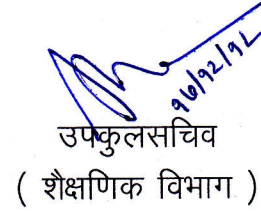 १७/१२/१८
उपकुलसचिव
( शैक्षणिक विभाग )